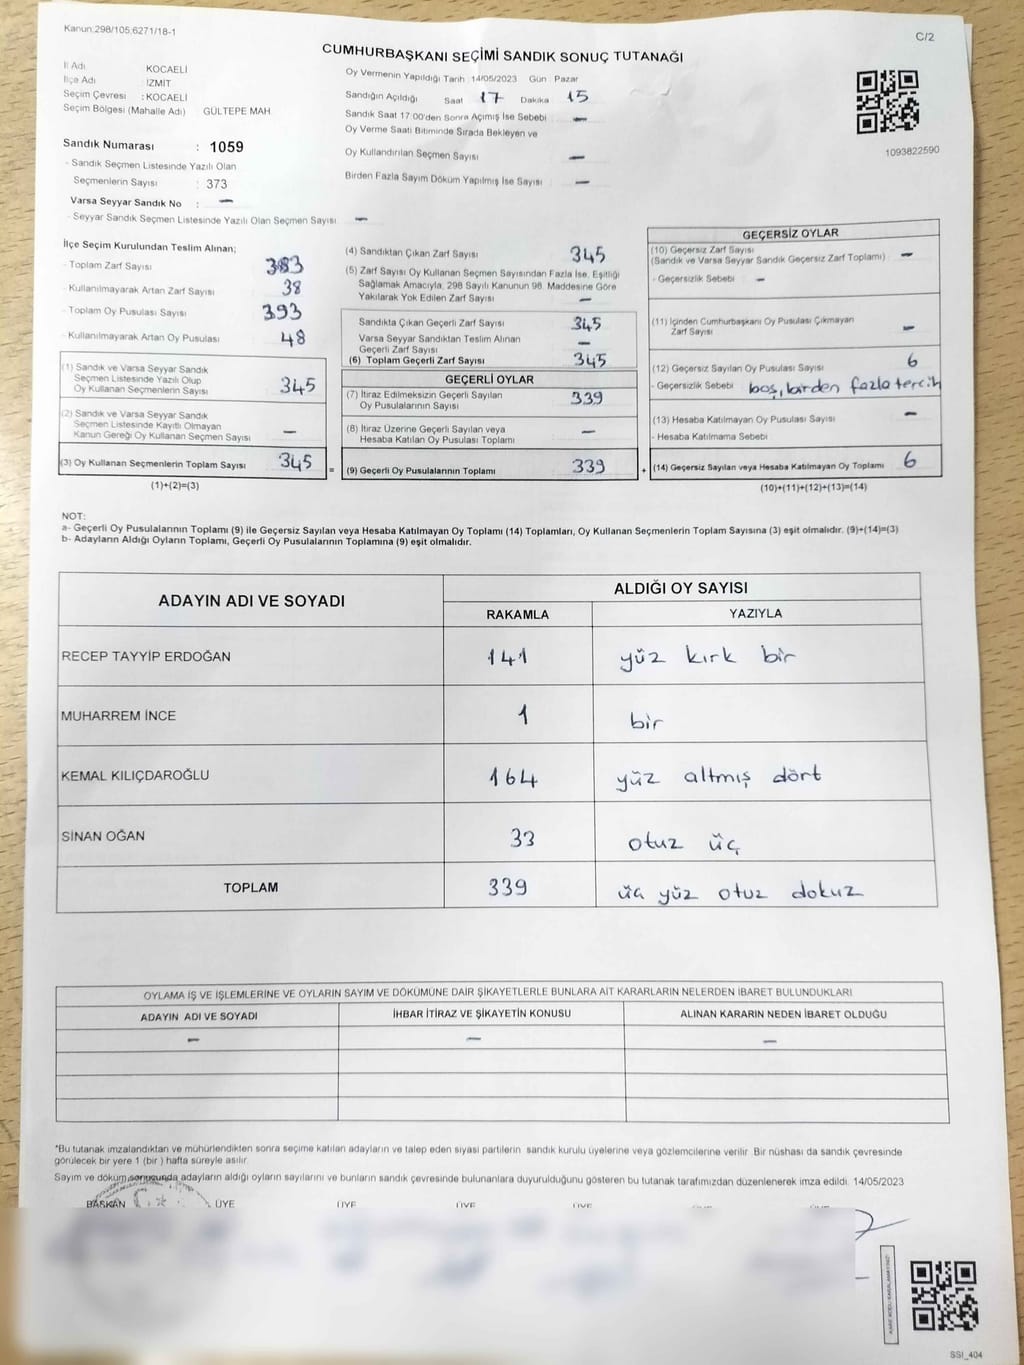 Kanun:298/105;6271/18-1
C/2
CUMHURBAŞKANI SEÇİMİ SANDIK SONUÇ TUTANAĞI
İl Adı KOCAELİ
İlçe Adı İZMİT
Seçim Çevresi : KOCAELİ
Seçim Bölgesi (Mahalle Adı) GÜLTEPE MAH
Sandık Numarası : 1059
- Sandık Seçmen Listesinde Yazılı Olan
Seçmenlerin Sayısı : 373
Varsa Seyyar Sandık No : -
- Seyyar Sandık Seçmen Listesinde Yazılı Olan Seçmen Sayısı -
Oy Vermenin Yapıldığı Tarih 14/05/2023 Gün Pazar
Sandığın Açıldığı Saat 17 Dakika 15
Sandık Saat 17:00'den Sonra Açımış İse Sebebi -
Oy Verme Saati Bitiminde Sırada Bekleyen ve
Oy Kullandırılan Seçmen Sayısı -
Birden Fazla Sayım Döküm Yapılmış İse Sayısı -
1093822590
İlçe Seçim Kurulundan Teslim Alınan;
- Toplam Zarf Sayısı 383
- Kullanılmayarak Artan Zarf Sayısı 38
- Toplam Oy Pusulası Sayısı 393
- Kullanılmayarak Artan Oy Pusulası 48
(1) Sandık ve Varsa Seyyar Sandık
Seçmen Listesinde Yazılı Olup
Oy Kullanan Seçmenlerin Sayısı 345
(2) Sandık ve Varsa Seyyar Sandık
Seçmen Listesinde Kayıtlı Olmayan
Kanun Gereği Oy Kullanan Seçmen Sayısı -
(3) Oy Kullanan Seçmenlerin Toplam Sayısı 345 =
(1)+(2)=(3)
(4) Sandıktan Çıkan Zarf Sayısı 345
(5) Zarf Sayısı Oy Kullanan Seçmen Sayısından Fazla İse, Eşitliği
Sağlamak Amacıyla, 298 Sayılı Kanunun 98. Maddesine Göre
Yakılarak Yok Edilen Zarf Sayısı -
Sandıkta Çıkan Geçerli Zarf Sayısı 345
Varsa Seyyar Sandıktan Teslim Alınan
Geçerli Zarf Sayısı -
(6) Toplam Geçerli Zarf Sayısı 345
GEÇERLİ OYLAR
(7) İtiraz Edilmeksizin Geçerli Sayılan
Oy Pusulalarının Sayısı 339
(8) İtiraz Üzerine Geçerli Sayılan veya
Hesaba Katılan Oy Pusulası Toplamı -
(9) Geçerli Oy Pusulalarının Toplamı 339 +
GEÇERSİZ OYLAR
(10) Geçersiz Zarf Sayısı
(Sandık ve Varsa Seyyar Sandık Geçersiz Zarf Toplamı) -
- Geçersizlik Sebebi -
(11) İçinden Cumhurbaşkanı Oy Pusulası Çıkmayan
Zarf Sayısı -
(12) Geçersiz Sayılan Oy Pusulası Sayısı 6
- Geçersizlik Sebebi boş, birden fazla tercih
(13) Hesaba Katılmayan Oy Pusulası Sayısı -
- Hesaba Katılmama Sebebi
(14) Geçersiz Sayılan veya Hesaba Katılmayan Oy Toplamı 6
(10)+(11)+(12)+(13)=(14)
NOT:
a- Geçerli Oy Pusulalarının Toplamı (9) ile Geçersiz Sayılan veya Hesaba Katılmayan Oy Toplamı (14) Toplamları, Oy Kullanan Seçmenlerin Toplam Sayısına (3) eşit olmalıdır. (9)+(14)=(3)
b- Adayların Aldığı Oyların Toplamı, Geçerli Oy Pusulalarının Toplamına (9) eşit olmalıdır.
ADAYIN ADI VE SOYADI ALDIĞI OY SAYISI
RAKAMLA YAZIYLA
RECEP TAYYİP ERDOĞAN 141 yüz kırk bir
MUHARREM İNCE 1 bir
KEMAL KILIÇDAROĞLU 164 yüz altmış dört
SİNAN OĞAN 33 otuz üç
TOPLAM 339 üç yüz otuz dokuz
OYLAMA İŞ VE İŞLEMLERİNE VE OYLARIN SAYIM VE DÖKÜMÜNE DAİR ŞİKAYETLERLE BUNLARA AİT KARARLARIN NELERDEN İBARET BULUNDUKLARI
ADAYIN ADI VE SOYADI İHBAR İTİRAZ VE ŞİKAYETİN KONUSU ALINAN KARARIN NEDEN İBARET OLDUĞU
- - -
*Bu tutanak imzalandıktan ve mühürlendikten sonra seçime katılan adayların ve talep eden siyasi partilerin sandık kurulu üyelerine veya gözlemcilerine verilir. Bir nüshası da sandık çevresinde
görülecek bir yere 1 (bir ) hafta süreyle asılır.
Sayım ve döküm sonucunda adayların aldığı oyların sayılarını ve bunların sandık çevresinde bulunanlara duyurulduğunu gösteren bu tutanak tarafımızdan düzenlenerek imza edildi. 14/05/2023
BAŞKAN ÜYE ÜYE ÜYE ÜYE
SSI_404